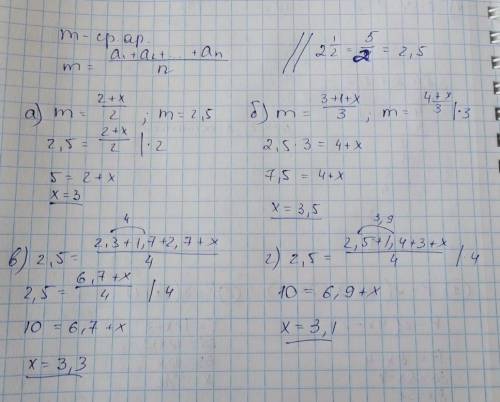 m - ср. ар.
m = (a₁+a₂+...+aₙ)/n
// 2 1/2 = 5/2 = 2,5
а) m = (2+x)/2 ; m = 2,5
2,5 = (2+x)/2 |·2
5 = 2+x
x = 3
б) m = (3+1+x)/3 , m = (4+x)/3 |·3
2,5·3 = 4+x
7,5 = 4+x
x = 3,5
4
в) 2,5 = (2,3+1,7+2,7+x)/4
2,5 = (6,7+x)/4 |·4
10 = 6,7+x
x = 3,3
3,9
г) 2,5 = (2,5+1,4+3+x)/4 |·4
10 = 6,9+x
x = 3,1